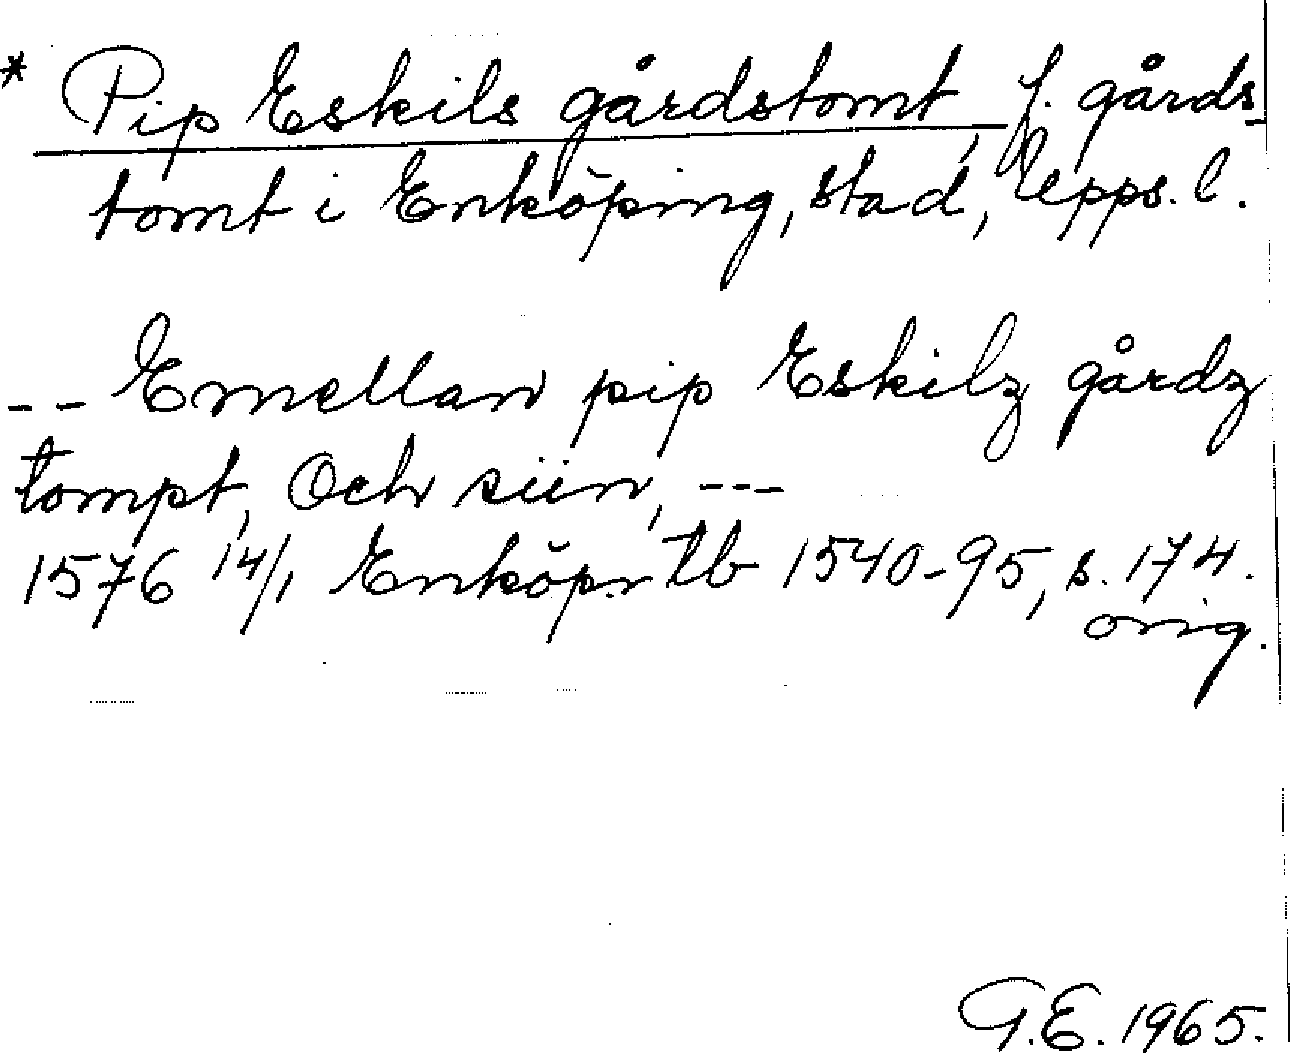 * Pip Eskils gårdstomt, f. gårds-
tomt i Enköping, stad, Upps. l.
-- Emellan pip Eskilz gårdz
tompt, Och siin, ---
1576 14/1 Enköp:n tb 1540-95, s. 174.
orig.
G.E. 1965.